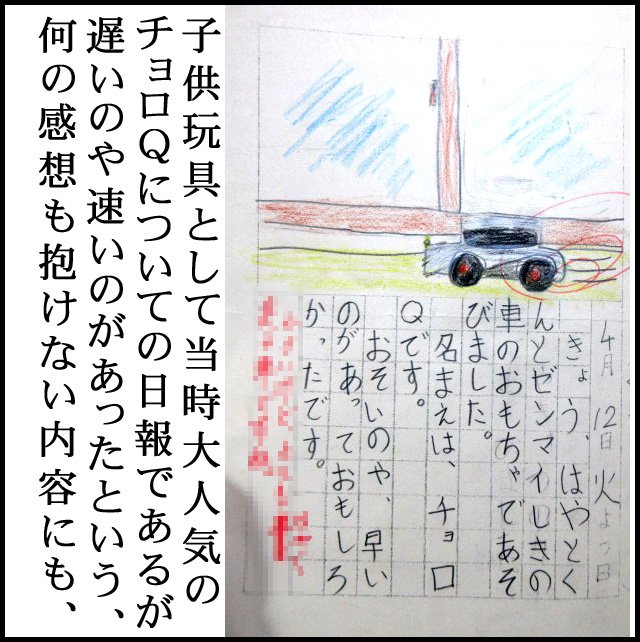 4月12日火よう日
きょう、はやとく
んとゼンマイしきの
車のおもちゃであそ
びました。
名まえは、チョロ
Qです。
おそいのや、早い
のがあっておもしろ
かったです。
子供玩具として当時大人気の
チョロQについての日報であるが
遅いのや速いのがあったという、
何の感想も抱けない内容にも、